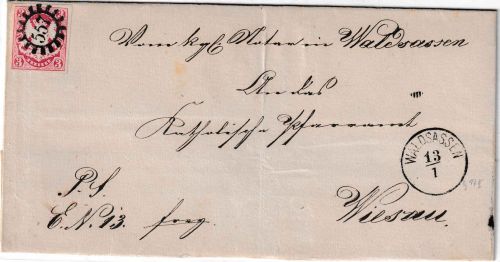 3 3
Vom kgl. Notar in Waldsassen
An das
Katholische Pfarramt
WALDSASSEN
13
1
P. S.
E. N. 13. frey.
Wiesau.